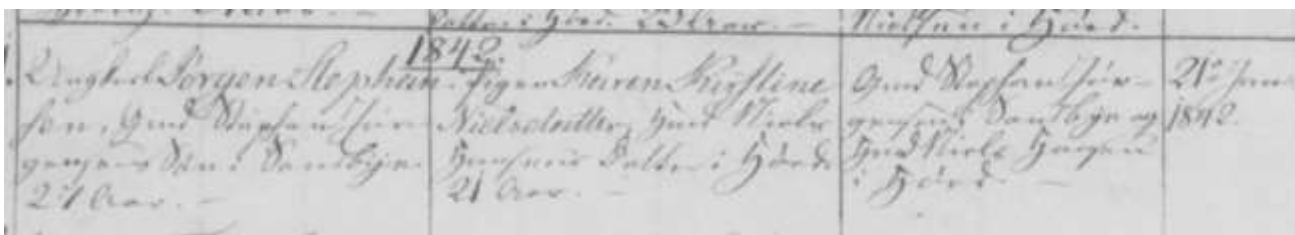 Datter i Hørd. 22 Aar. —
Nielsen i Hørd.
1842.
Ungkarl Jørgen Stephan-
sen, Gmd Stephan Jør-
gensens Søn i Sandbye.
27 Aar. —
Pigen Karen Kirstine
Nielsdatter, Huusmd Niels
Hansens Datter i Hørd.
21 Aar. —
Gmd Stephan Jør-
gensen i Sandbye og
Huusmd Niels Hansen
i Hørd. —
21de Jan
1842.